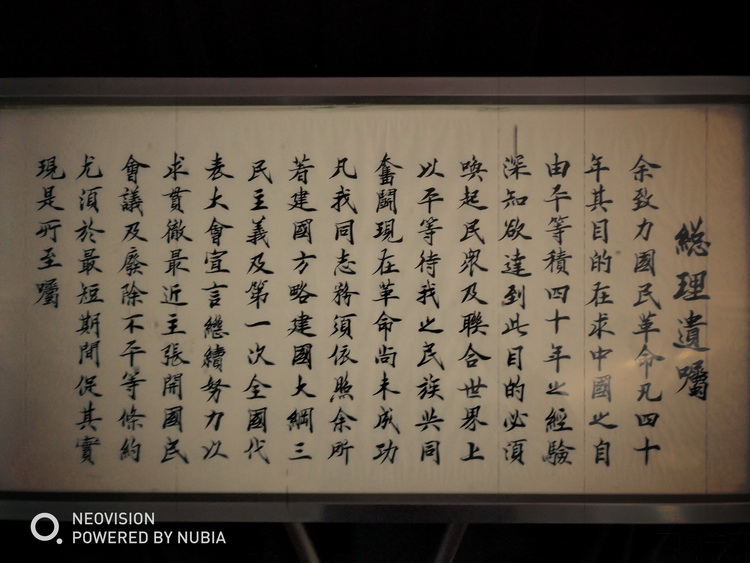 総理遺囑
余致力國民革命凡四十
年其目的在求中國之自
由平等積四十年之經驗
深知欲達到此目的必須
喚起民衆及聯合世界上
以平等待我之民族共同
奮鬪現在革命尚未成功
凡我同志務須依照余所
著建國方略建國大綱三
民主義及第一次全國代
表大會宣言繼續努力以
求貫徹最近主張開國民
會議及廢除不平等條約
尤須於最短期間促其實
現是所至囑
NEOVISION
POWERED BY NUBIA